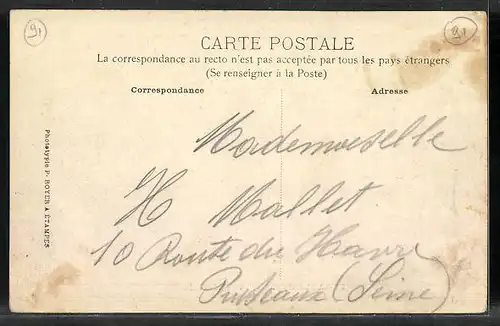 91
91
CARTE POSTALE
La correspondance au recto n'est pas acceptée par tous les pays étrangers
(Se renseigner à la Poste)
Correspondance
Adresse
Mademoiselle
H Mallet
10 Route du Havre
Puteaux (Seine)
Phototypie Pr ROYER A ÉTAMPES